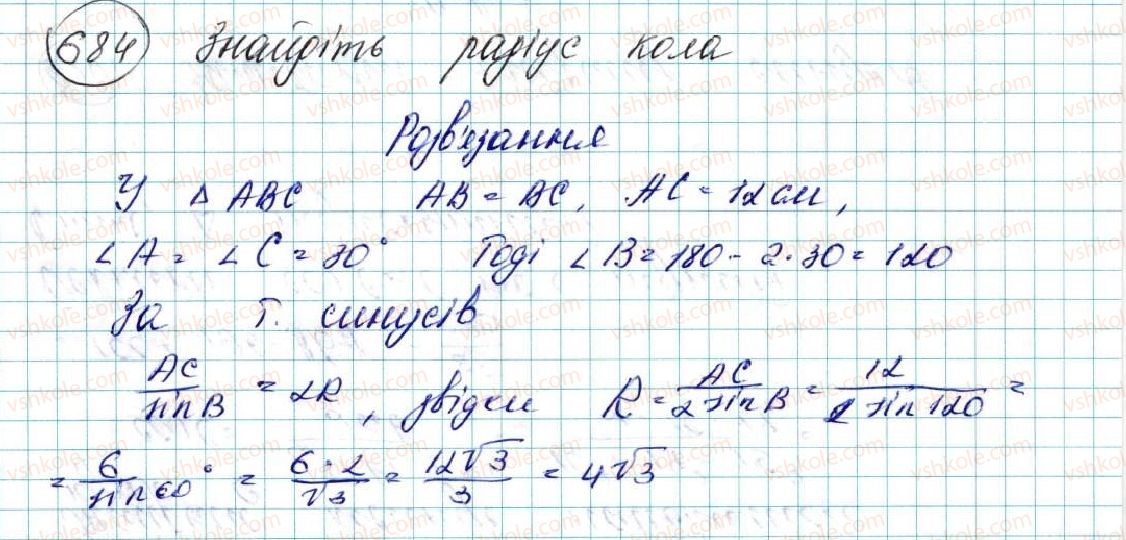 684 Знайдіть радіус кола
Розв'язання
У △ ABC AB = BC, AC = 12 см,
∠A = ∠C = 30° Тоді ∠B = 180 - 2·30 = 120
За т. синусів
AC/sin B = 2R, звідки R = AC/2 sin B = 12/2 sin 120 =
= 6/sin 60° = 6·2/√3 = 12√3/3 = 4√3